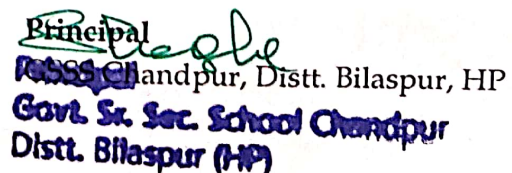 Principal
GSSS Chandpur, Distt. Bilaspur, HP
Principal
Govt. Sr. Sec. School Chandpur
Distt. Bilaspur (HP)